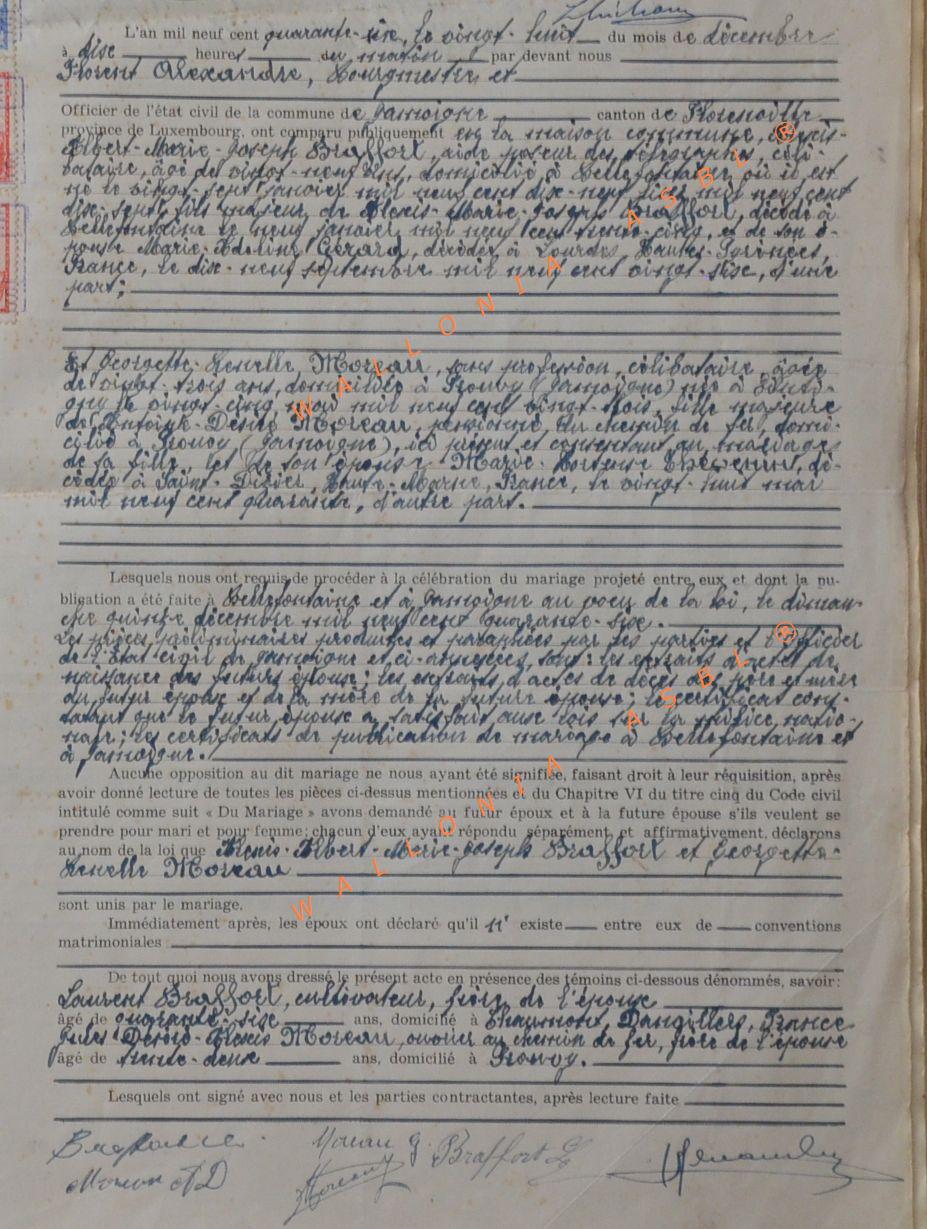 L'an mil neuf cent quarante-six, le vingt-huit du mois de décembre
à dix heures du matin par devant nous
Florent Alexandre, Bourgmestre et
Officier de l'état civil de la commune de Jamoigne canton de Florenville
province de Luxembourg, ont comparu publiquement en la maison commune, Alexis-
Albert-Marie-Joseph Braffort, aide poseur des télégraphes, céli-
bataire, âgé de vingt-neuf ans, domicilié à Bellefontaine où il est
né le vingt-sept janvier mil neuf cent dix-neuf mil neuf cent
dix-sept, fils majeur de Alexis-Marie-Joseph Braffort, décédé à
Bellefontaine le neuf janvier mil neuf cent trente-cinq, et de son é-
pouse Marie-Adeline Gérard, décédée à Lourdes, Hautes-Pyrénées,
France, le dix-neuf septembre mil neuf cent vingt-six, d'une
part;
Et Georgette-Moreau, sans profession, célibataire, âgée
de vingt-trois ans, domiciliée à Prouvy (Jamoigne) née à
le vingt-cinq mil neuf cent vingt-trois, fille majeure
de Désiré Moreau, pensionné du chemin de fer, domi-
cilié à Prouvy (Jamoigne), ici présent et consentant au mariage
de sa fille, et de son épouse Marie-Hortense dé-
cédée à Saint-Dizier, Haute-Marne, France, le vingt-huit mai
mil neuf cent quarante, d'autre part.
Lesquels nous ont requis de procéder à la célébration du mariage projeté entre eux et dont la pu-
blication a été faite à Bellefontaine et à Jamoigne au vœu de la loi, le diman-
che quinze décembre mil neuf cent quarante-six.
Les pièces préliminaires produites et paraphées par les parties et l'Officier
de l'État civil de Jamoigne et ci-annexées, sont: les extraits d'actes de
naissance des futurs époux; les extraits d'actes de décès des père et mère
du futur époux et de la mère de la future épouse; le certificat cons-
tatant que le futur époux a satisfait aux lois sur la milice natio-
nale; les certificats de publication de mariage à Bellefontaine et
à Jamoigne.
Aucune opposition au dit mariage ne nous ayant été signifiée, faisant droit à leur réquisition, après
avoir donné lecture de toutes les pièces ci-dessus mentionnées et du Chapitre VI du titre cinq du Code civil
intitulé comme suit « Du Mariage » avons demandé au futur époux et à la future épouse s'ils veulent se
prendre pour mari et pour femme; chacun d'eux ayant répondu séparément et affirmativement, déclarons
au nom de la loi que Alexis-Albert-Marie-Joseph Braffort et Georgette-
Moreau
sont unis par le mariage.
Immédiatement après, les époux ont déclaré qu'il n'existe entre eux de conventions
matrimoniales :
De tout quoi nous avons dressé le présent acte en présence des témoins ci-dessous dénommés, savoir:
Laurent Braffort, cultivateur, frère de l'époux
âgé de quarante-six ans, domicilié à Chaumont, France
Jules-Désiré-Alexis Moreau, ouvrier au chemin de fer, frère de l'épouse
âgé de trente-deux ans, domicilié à Prouvy.
Lesquels ont signé avec nous et les parties contractantes, après lecture faite
Moreau G. Braffort L
Moreau AD
WALLONIA ASBL ®
WALLONIA ASBL ®